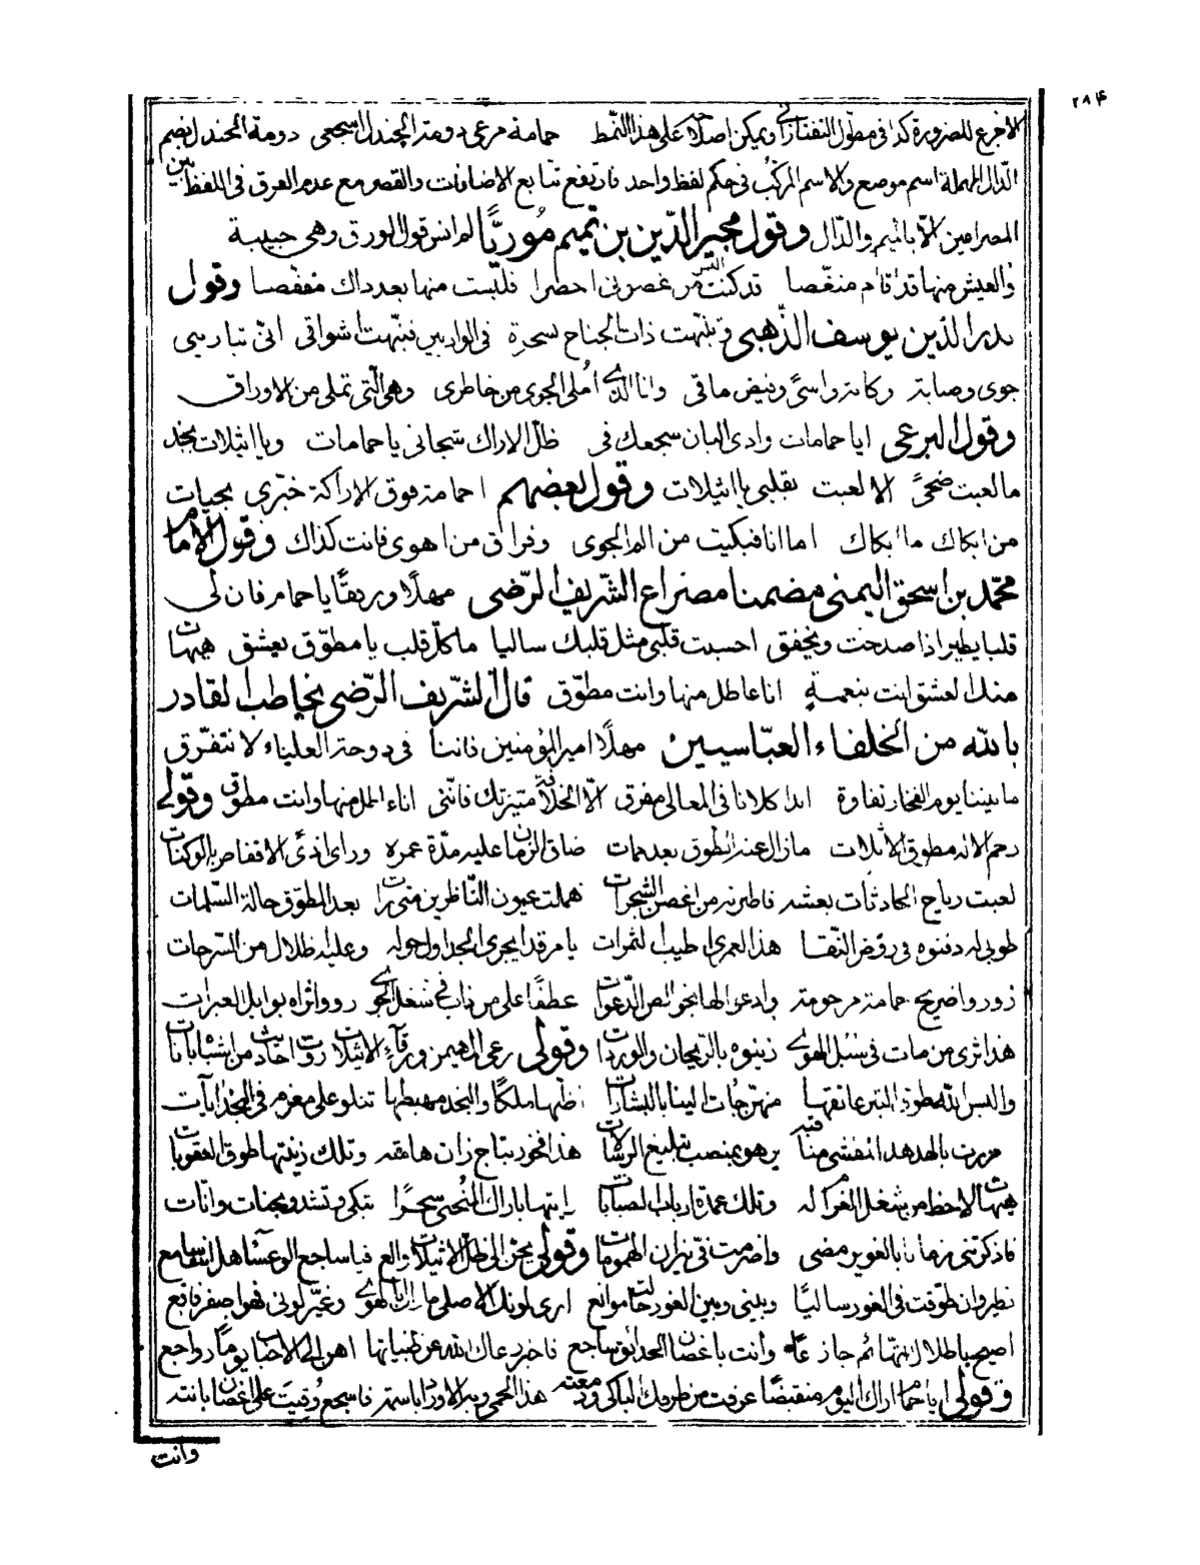 ٢٨٤
الاجرع للضرورة كذا فى مطول التفتازانى ويمكن اصلاحه على هذا النمط حمامة مرعى دومة الجندل اسجعى دومة الجندل بضم
الدال المهملة اسم موضع والاسم المركب فى حكم لفظ واحد فارتفع تتابع الاضافات والقصر مع عدم الفرق فى اللفظ بين
المصراعين الا بالميم والدال وقول مجير الدين بن تميم مُوريًّا لم انس قول الورق وهى حبيسة
والعيش منها قد اقام منغصا قد كنت البس من غصونى اخضرا فلبست منها بعد ذاك مقفصا وقول
بدر الدين يوسف الذهبى وتنبهت ذات الجناح بسحرة فى الواديين فنبهت اشواقى انى تبارينى
جوى وصبابة وكابة واسىً وفيض ماقى وانا الذى املى الجوى من خاطرى وهى التى تملى من الاوراق
وقول البرعى ايا حمامات وادى البان سجعك فى ظل الاراك شجانى يا حمامات ويا اثيلات نجد
ما لعبت ضحىً الا لعبت بقلبى يا اثيلات وقول بعضهم احمامة فوق الاراكة خبرى بحيات
من ابكاك ما ابكاك اما انا فبكيت من الم الجوى وفراق من اهوى فانت كذاك وقول الامام
محمد بن اسحق اليمنى مضمنا مصراع الشريف الرضى مهلًا ورفقًا يا حمام فان لى
قلبا يطير اذا صدحت ويخفق احسبت قلبى مثل قلبك ساليا ما كل قلب يا مطوق يعشق هيهات
منك العشق انت بنعمة انا عاطل منها وانت مطوق قال الشريف الرضى يخاطب القادر
بالله من الخلفاء العباسيين مهلًا امير المؤمنين فاننا فى دوحة العلياء لا نتفرق
ما بيننا يوم الفخار تفاوة ابدا كلانا فى المعالى مفرق الا الخلافة ميزتك فاننى انا عاطل منها وانت مطوق وقولى
رحم الاله مطوق الاثلات ما زال عنه الطوق بعد ممات ضاق الزمان عليه مدة عمره ورأى اذى الاقفاص بالوكنات
لعبت رياح الحادثات بعشه فاطرنه من اغصن الشجرات هملت عيون الناظرين متى رأت بعد المطوق حالة السلمات
طوبى له دفنوه فى روض النقا هذا لعمرى اطيب الثمرات يا مرقدا يجرى الجداول حوله وعليه ظلال من السرحات
زوروا ضريح حمامة مرحومة وادعوا لها بخوالص الدعوات عطفًا على من ذاب فى شغل الجوى رووا ثراه بوابل العبرات
هذا ثرى من مات فى سبل الهوى زينوه بالريحان والوردات وقولى رعى المهيمن ورقاء الاثيلات روت احاديث من اشباه بانات
والبس الله طوق التبر عانقها متى رجات الينا بالبشارات اظنها ملكًا والنجد مهبطها تتلو على مغرم فى النجد ايات
مررت بالهدهد انفشى منافيه يزهو بمنصب تبليغ الرسالات هذا فخور بتاج زان هامته وتلك زينتها طوق العقوبات
هيهات لاحظ من شغل الغرام له وتلك عمدة ارباب الصبابات رايتها باراك المنحنى سحرًا تبكى وتنشد وجنات وانات
فاذكرتنى زمانا بالغوير مضى واضرمت فىّ نيران الهمومات وقولى يحن الى ظل الاثيلات والع فيا ساجع الوعساء هل انت سامع
نظير وان طوقت فى الغور ساليًا وبينى وبين الغور حالت موانع ارى لونك الاصلى ما زال بالهوى وغير لونى فهو اصفر فاقع
اصيح باطلال التهائم جازعًا وانت باغصان الحدائق ساجع فاخبر رعاك الله عن ظبياتها اهن الى الاحباب يومًا رواجع
وقولى ايا حمام اراك اليوم منقبضًا عرفت من طرفك الباكى ودمعته هذا الحمى وبه الاوراد باسمة فاسجع رقيت على اغصان بانته
وانت